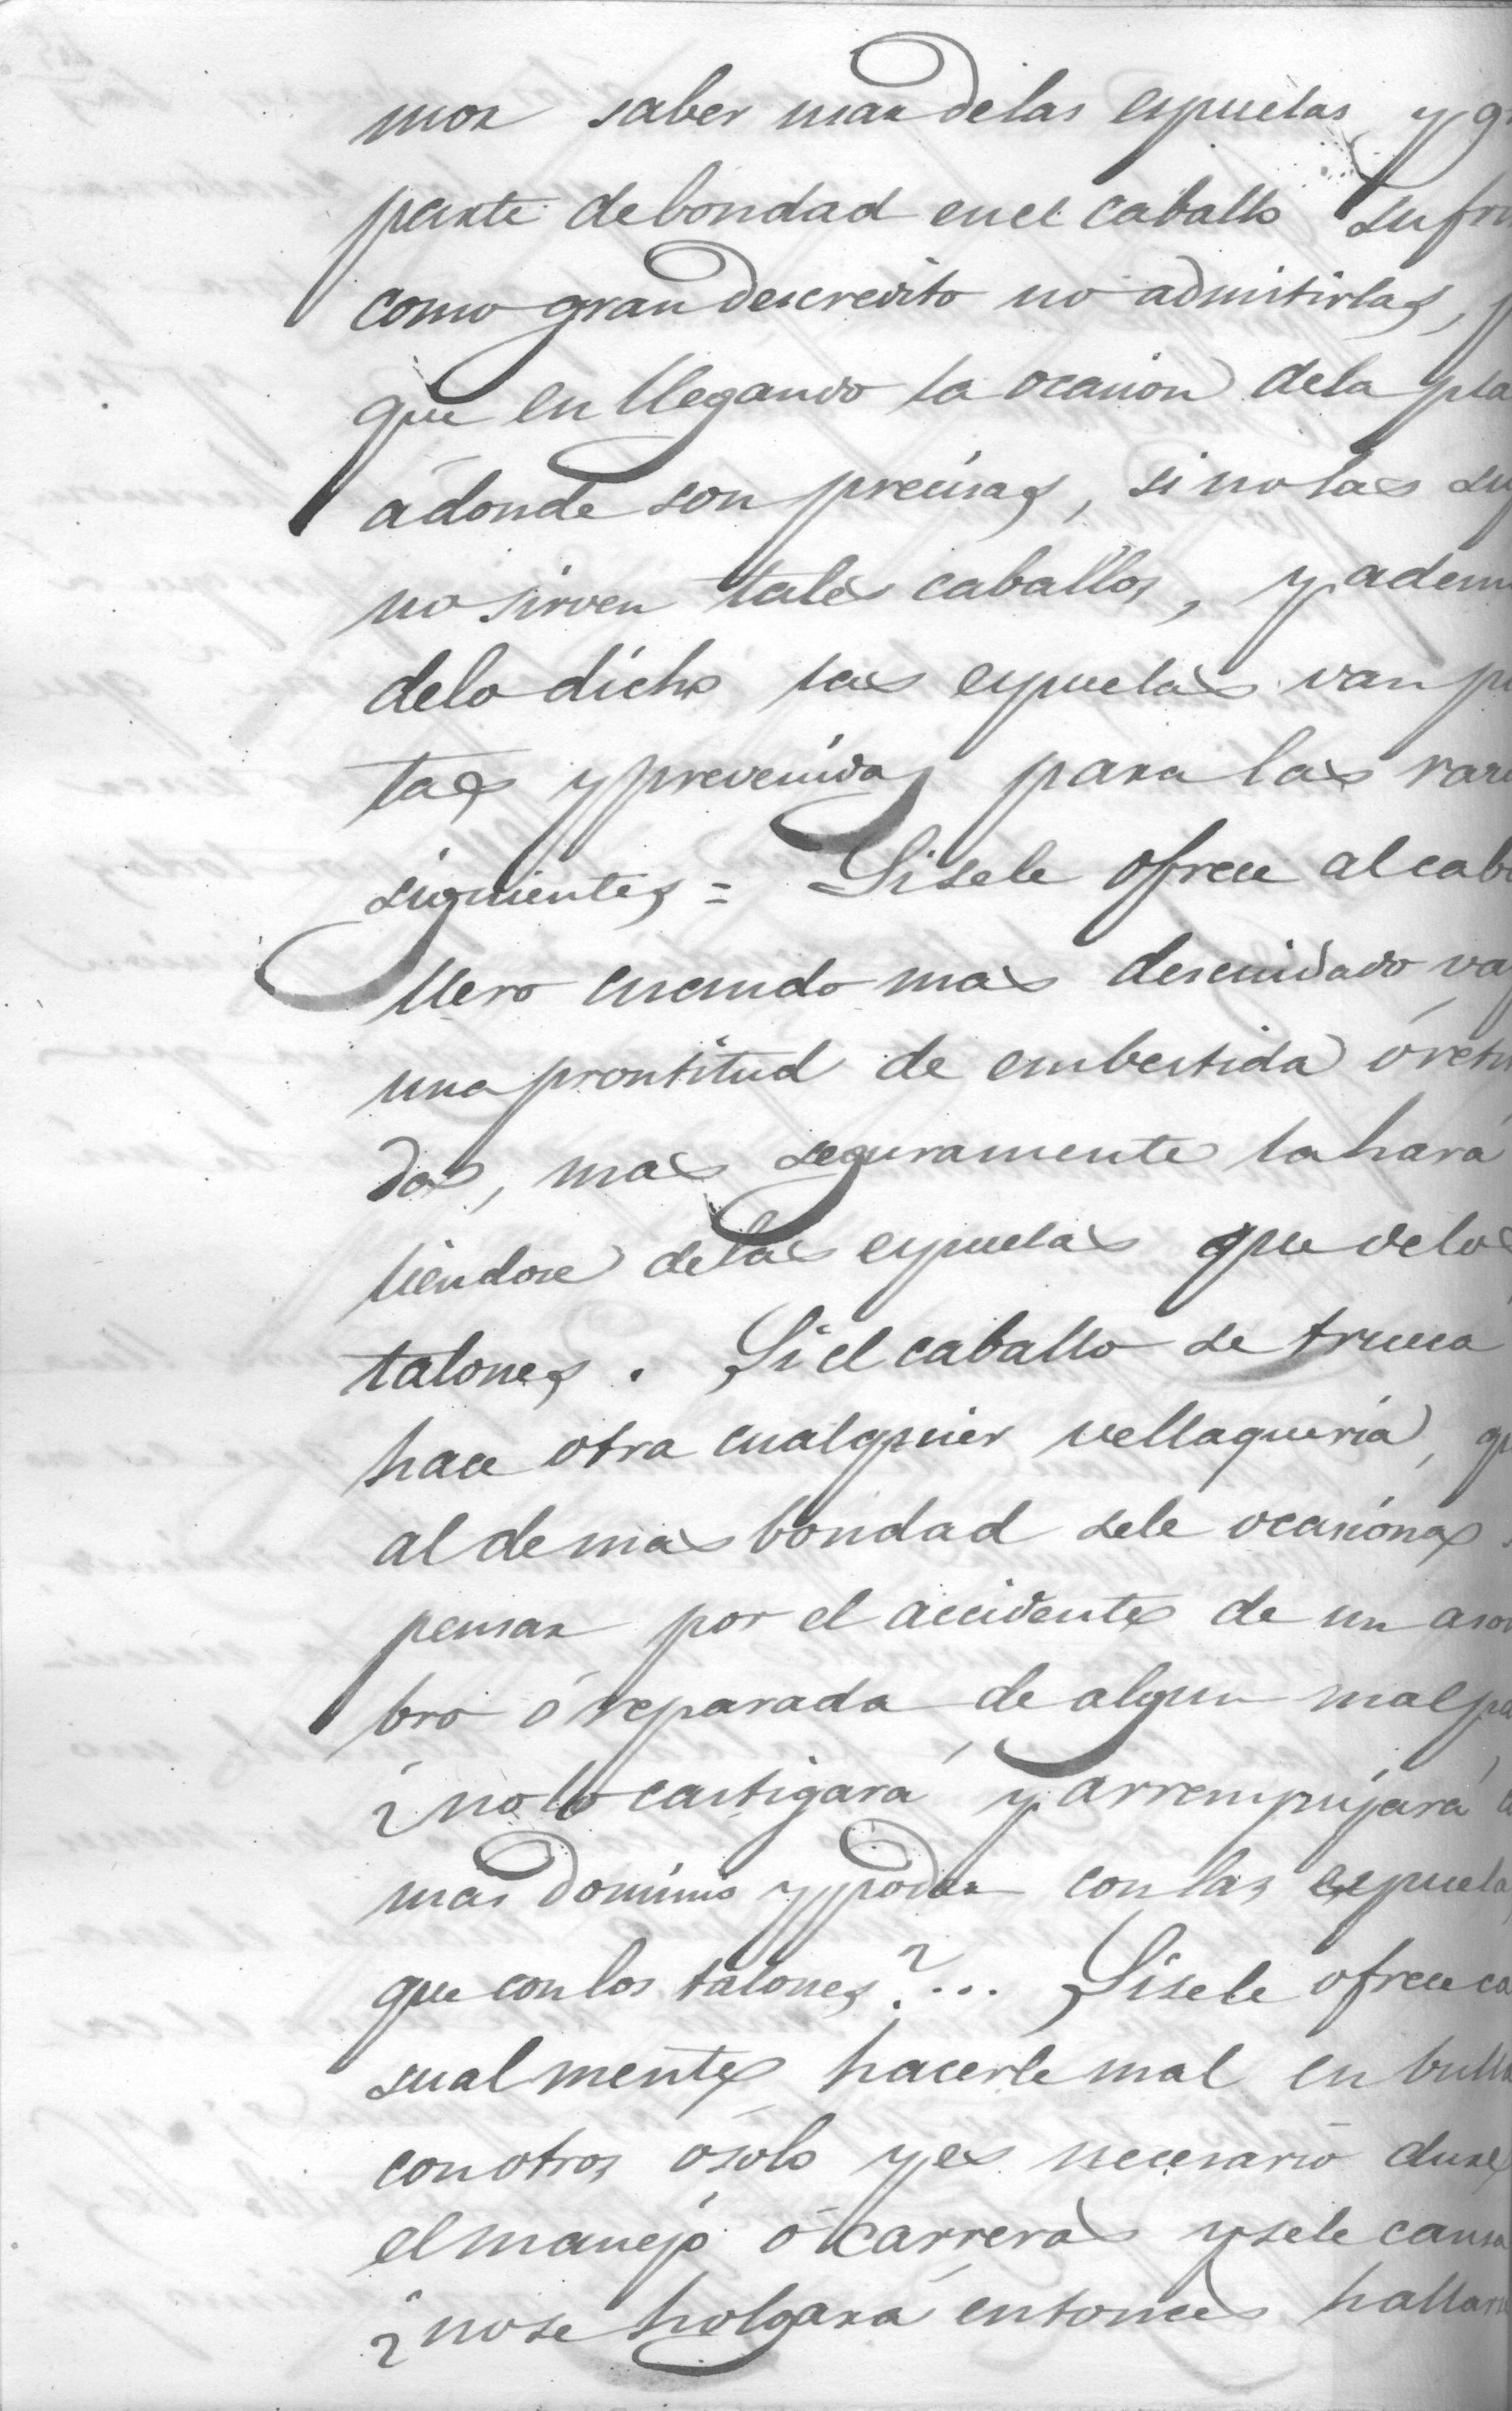 mos saber mas delas espuelas y g
parte debondad enel caballo sufri
como gran descredito no admitirlas, p
que en llegando la ocasion dela pla
ádonde son precisas, si no las su
no sirven tales caballos, y adem
delo dicho las espuelas van pu
tas y prevenidas para las razo
siguientes = Sisele ofrece al caba
llero cuando mas descuidado va
una prontitud de embestida ó retir
das, mas seguramente la hará
liendose delas espuelas que delos
talones. Si el caballo se trueca
hace otra cualquier vellaquería, q
al de mas bondad sele ocasiona s
pensar por el accidente de un asom
bro ó reparada de algun mal pa
¿no lo castigará y arrempujará c
mas dominio y poder con las espuelas
que con los talones?... Sisele ofrece ca
sualmente hacerle mal en bulla
con otros ó solo y es necesario dure
el manejo ó carreras y sele cansa
¿nose holgará entonces hallars